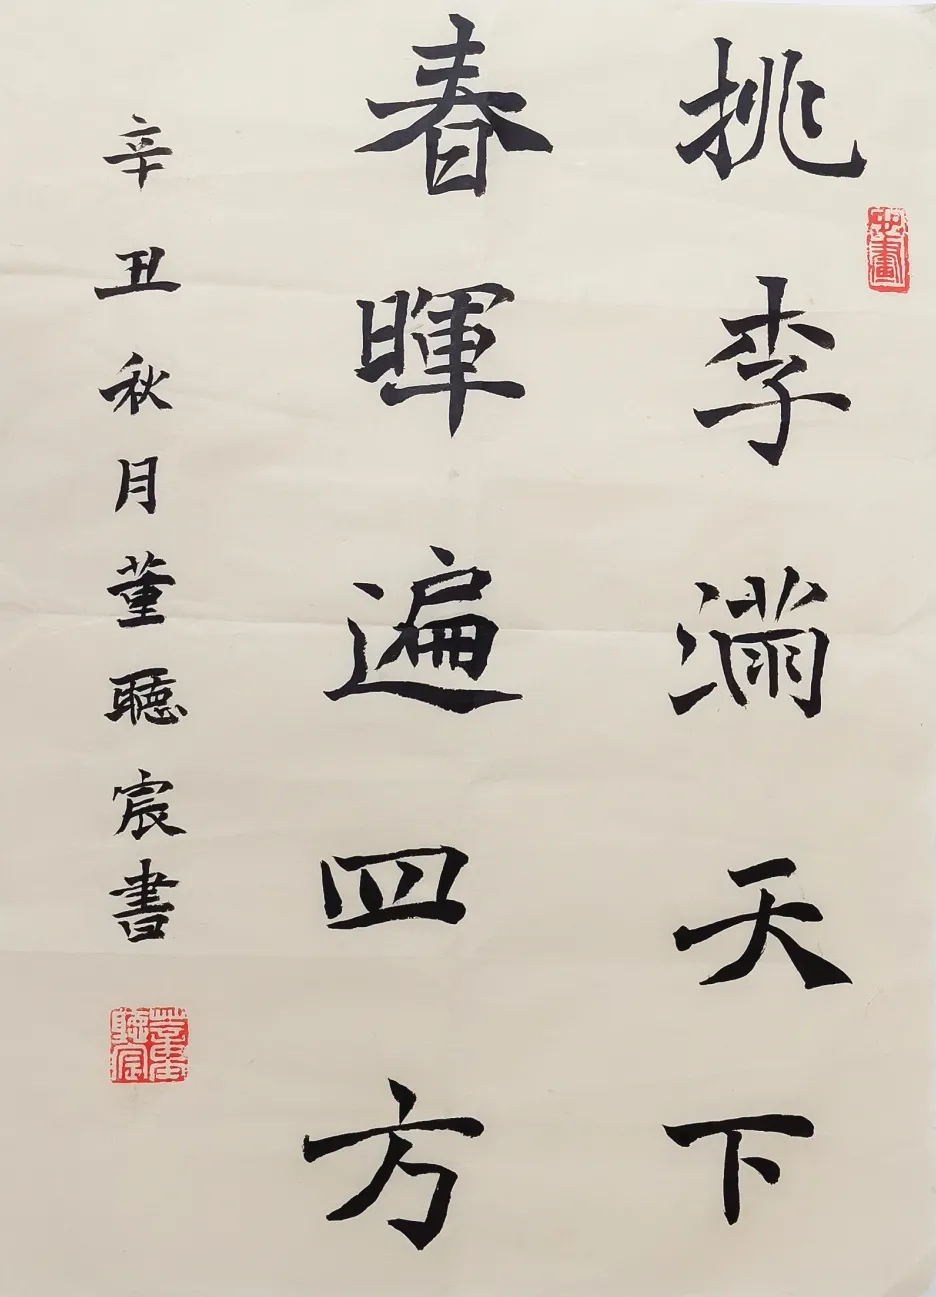 挑李满天下
春暉遍四方
辛丑秋月董聽宸書
董聽宸